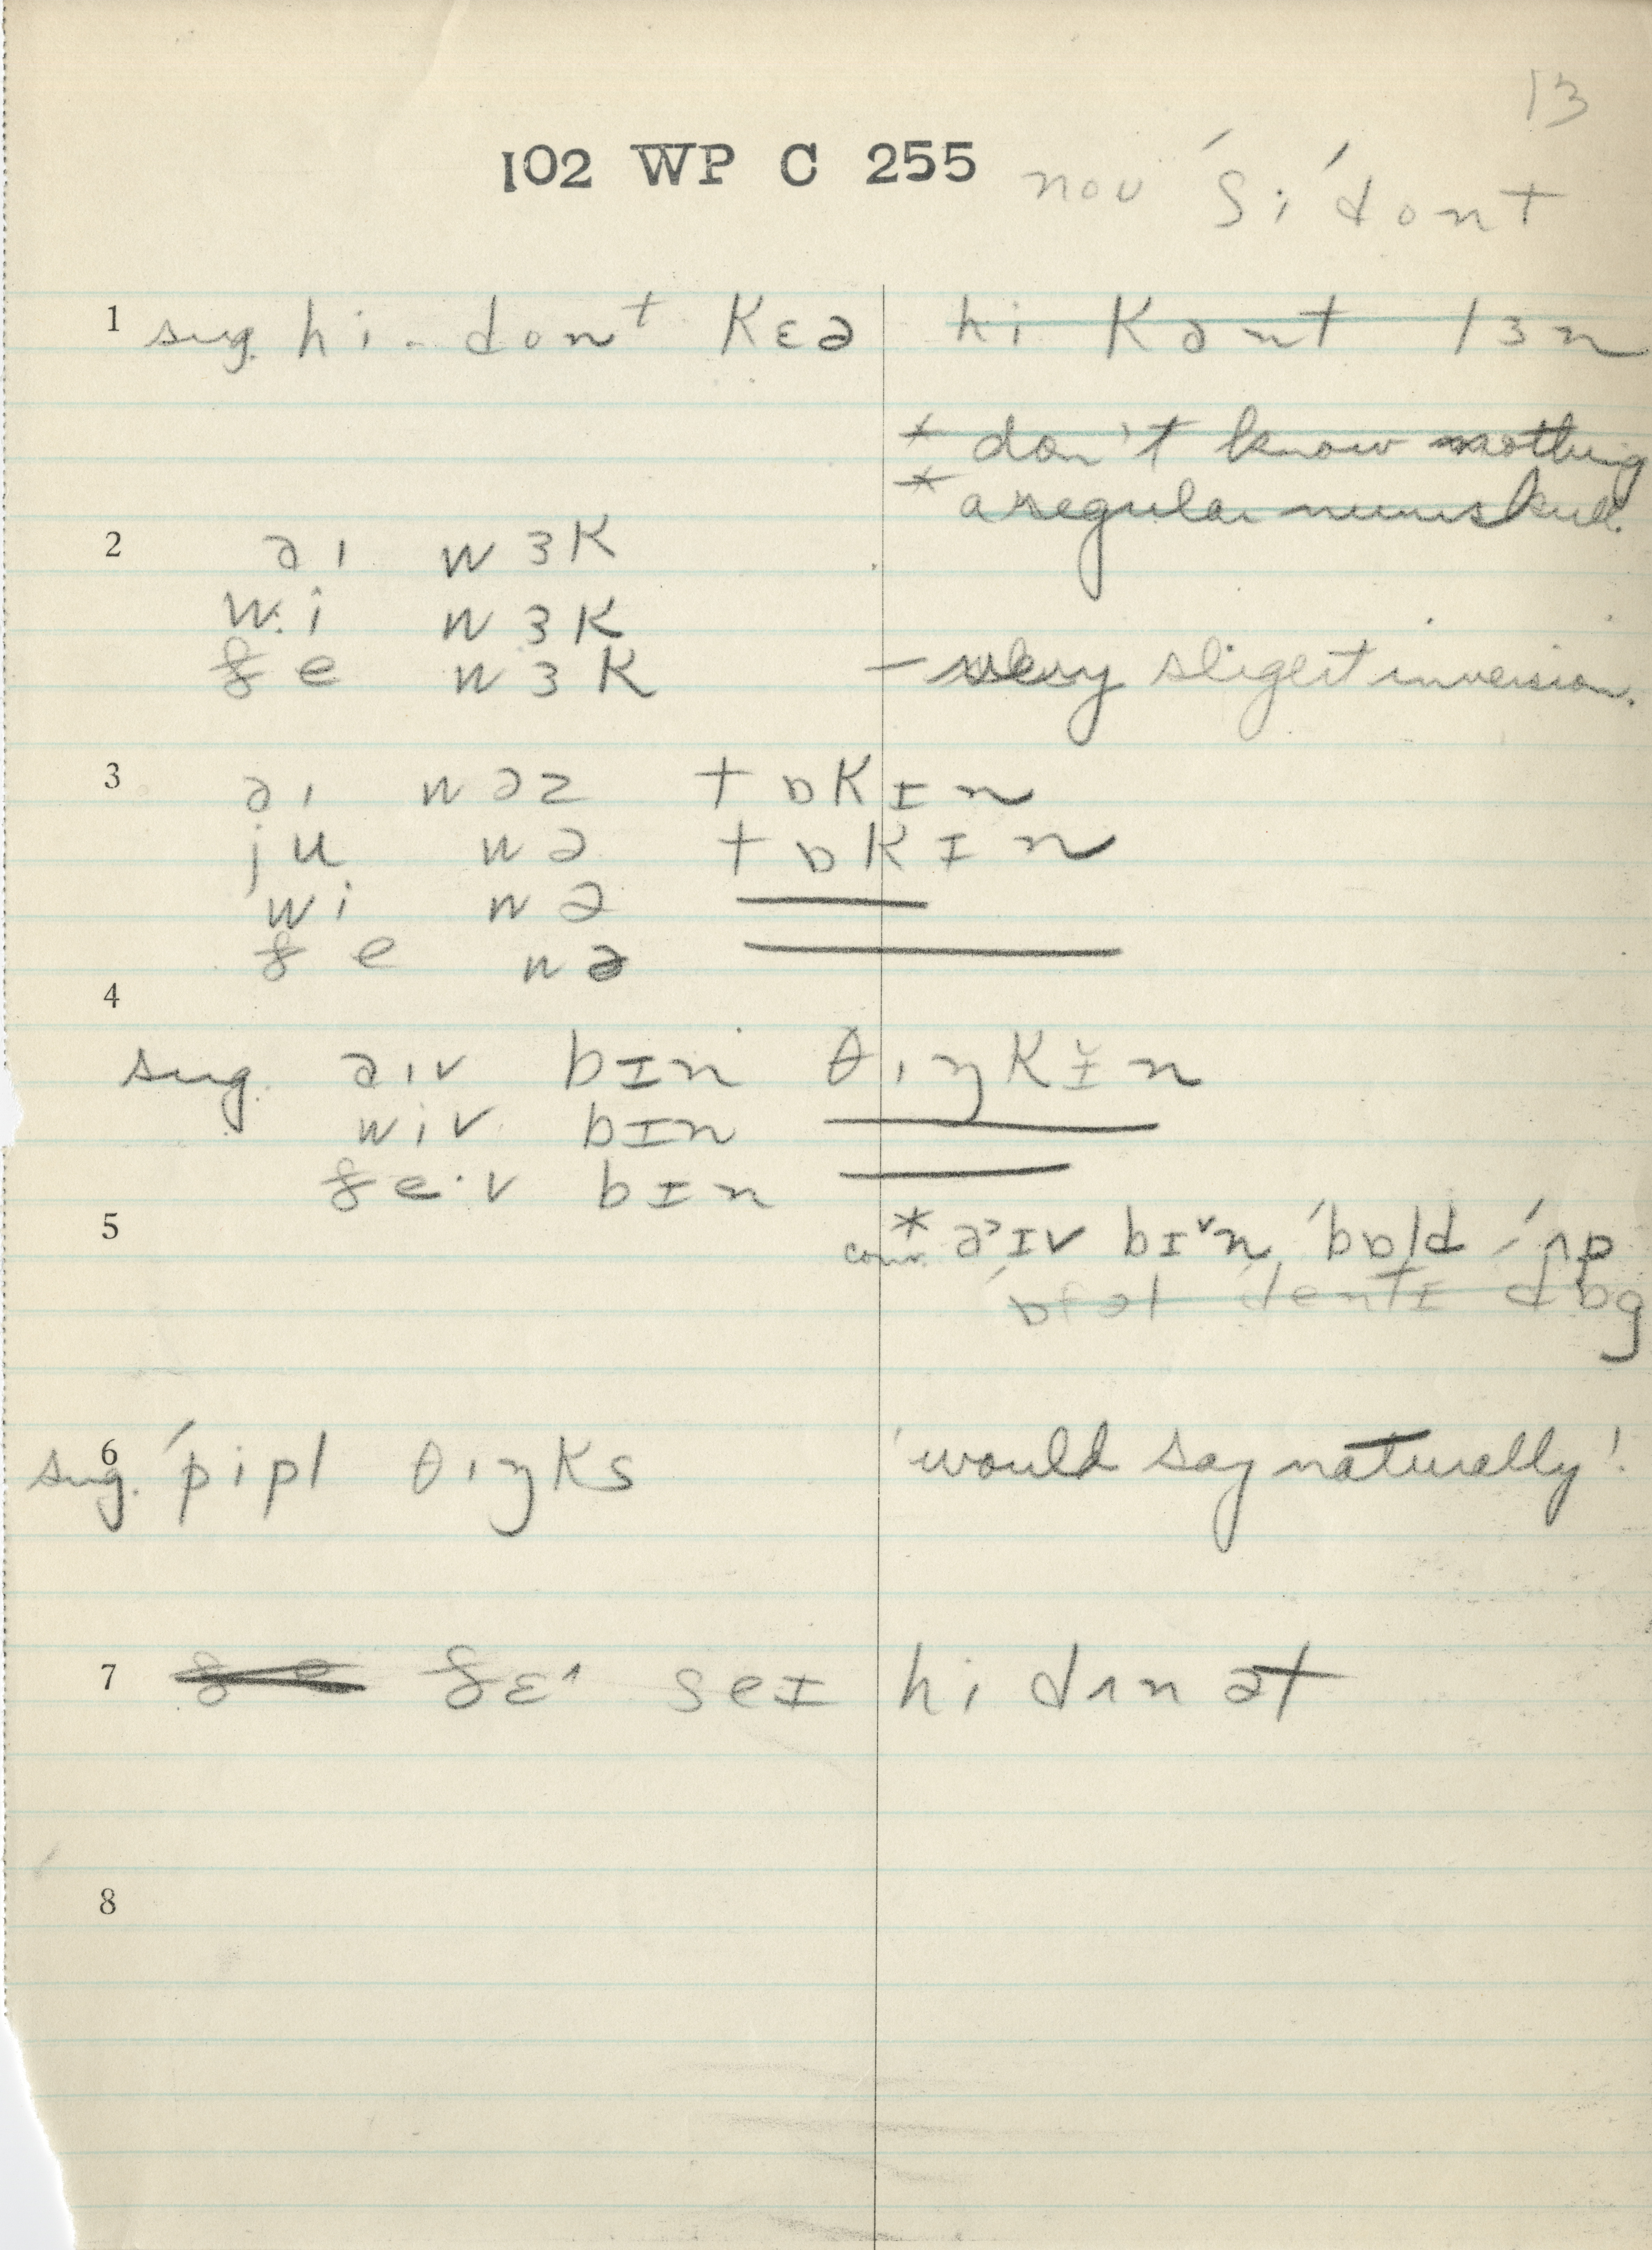 13
102 WP C 255 noʊ ˈʃi ˈdont
1 sug. hi. dont kɛə hi kənt lɜn
* don't know nothing
* a regular numskull.
2 əɪ wɜk
wi wɜk
ðe wɜk – very slight inversion.
3 əɪ wəz tɒkɪn
ju wə tɒkɪn
wi wə
ðe wə
4
sug. əɪv bɪn θɪŋkɪ̆n
wiv bɪn
ðe·v bɪn
5
* conv. əˀɪv bɪ˅n ˈbɒld ˈʌp
ˈɒfəl dɒg
6 sug. ˈpipl θɪŋks 'would say naturally'.
7 ðɛ˄ seɪ hi dɪn ət
8